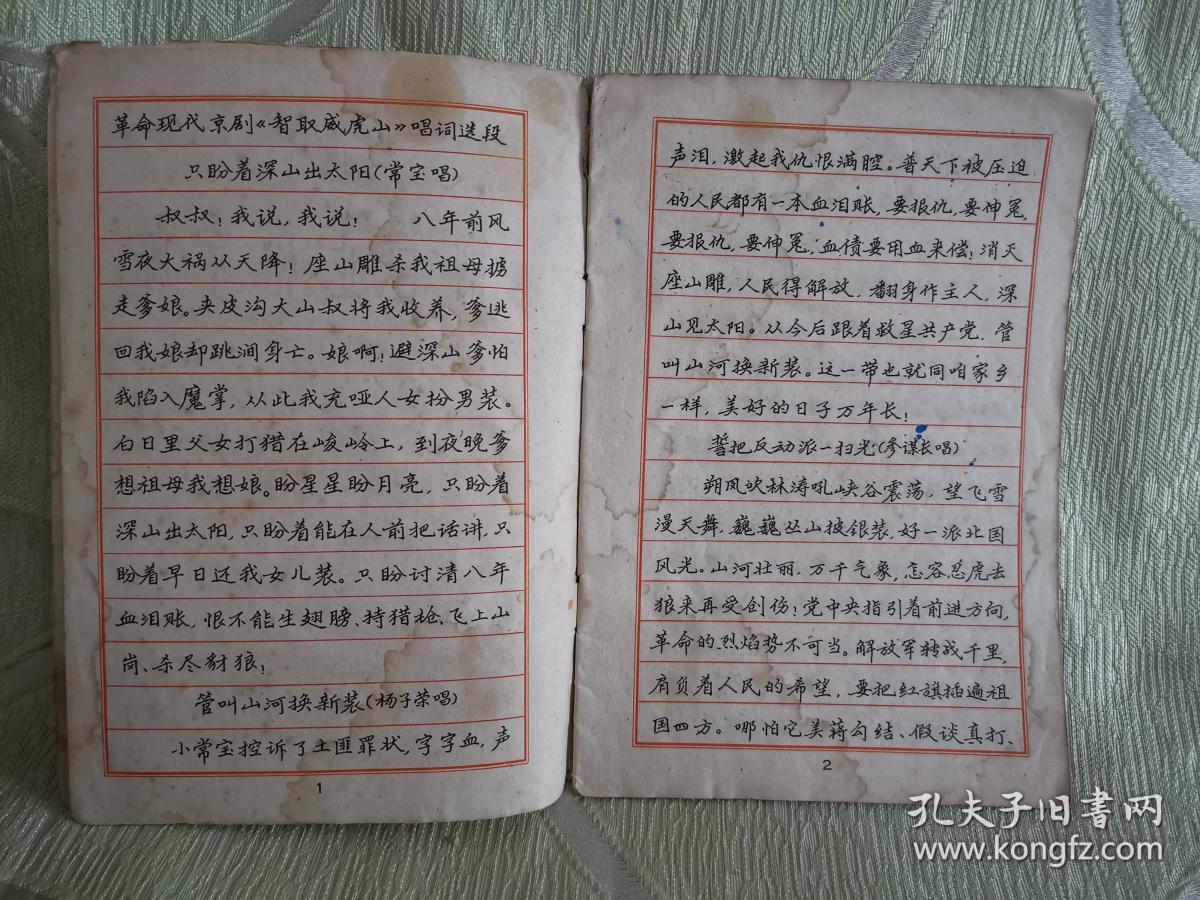 革命现代京剧《智取威虎山》唱词选段
只盼着深山出太阳(常宝唱)
叔叔!我说,我说! 八年前风
雪夜大祸从天降!座山雕杀我祖母掳
走爹娘。夹皮沟大山叔将我收养,爹逃
回我娘却跳涧身亡。娘啊!避深山爹怕
我陷入魔掌,从此我充哑人女扮男装。
白日里父女打猎在峻岭上,到夜晚爹
想祖母我想娘。盼星星盼月亮,只盼着
深山出太阳,只盼着能在人前把话讲,只
盼着早日还我女儿装。只盼讨清八年
血泪账,恨不能生翅膀、持猎枪、飞上山
岗、杀尽豺狼!
管叫山河换新装(杨子荣唱)
小常宝控诉了土匪罪状,字字血,声
1
声泪,激起我仇恨满腔。普天下被压迫
的人民都有一本血泪账,要报仇,要伸冤,
要报仇,要伸冤,血债要用血来偿!消灭
座山雕,人民得解放,翻身作主人,深
山见太阳。从今后跟着救星共产党,管
叫山河换新装。这一带也就同咱家乡
一样,美好的日子万年长!
誓把反动派一扫光(参谋长唱)
朔风吹林涛吼峡谷震荡,望飞雪
漫天舞,巍巍丛山披银装,好一派北国
风光。山河壮丽,万千气象,怎容忍虎去
狼来再受创伤!党中央指引着前进方向,
革命的烈焰势不可当。解放军转战千里,
肩负着人民的希望,要把红旗插遍祖
国四方。哪怕它美蒋勾结、假谈真打、
2
孔夫子旧书网
www.kongfz.com